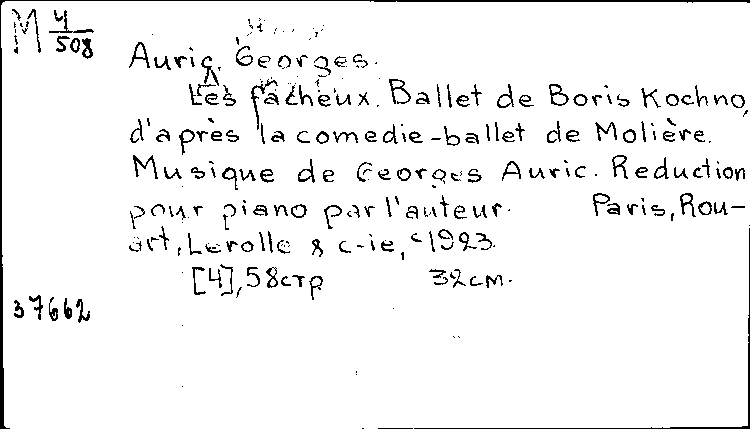 М 4/508
Auric, Georges.
Les fâcheux. Ballet de Boris Kochno,
d'après la comedie-ballet de Molière.
Musique de Georges Auric. Reduction
pour piano par l'auteur. Paris, Rou-
art, Lerolle & c-ie, c1923.
[4], 58стр 32см.
37662